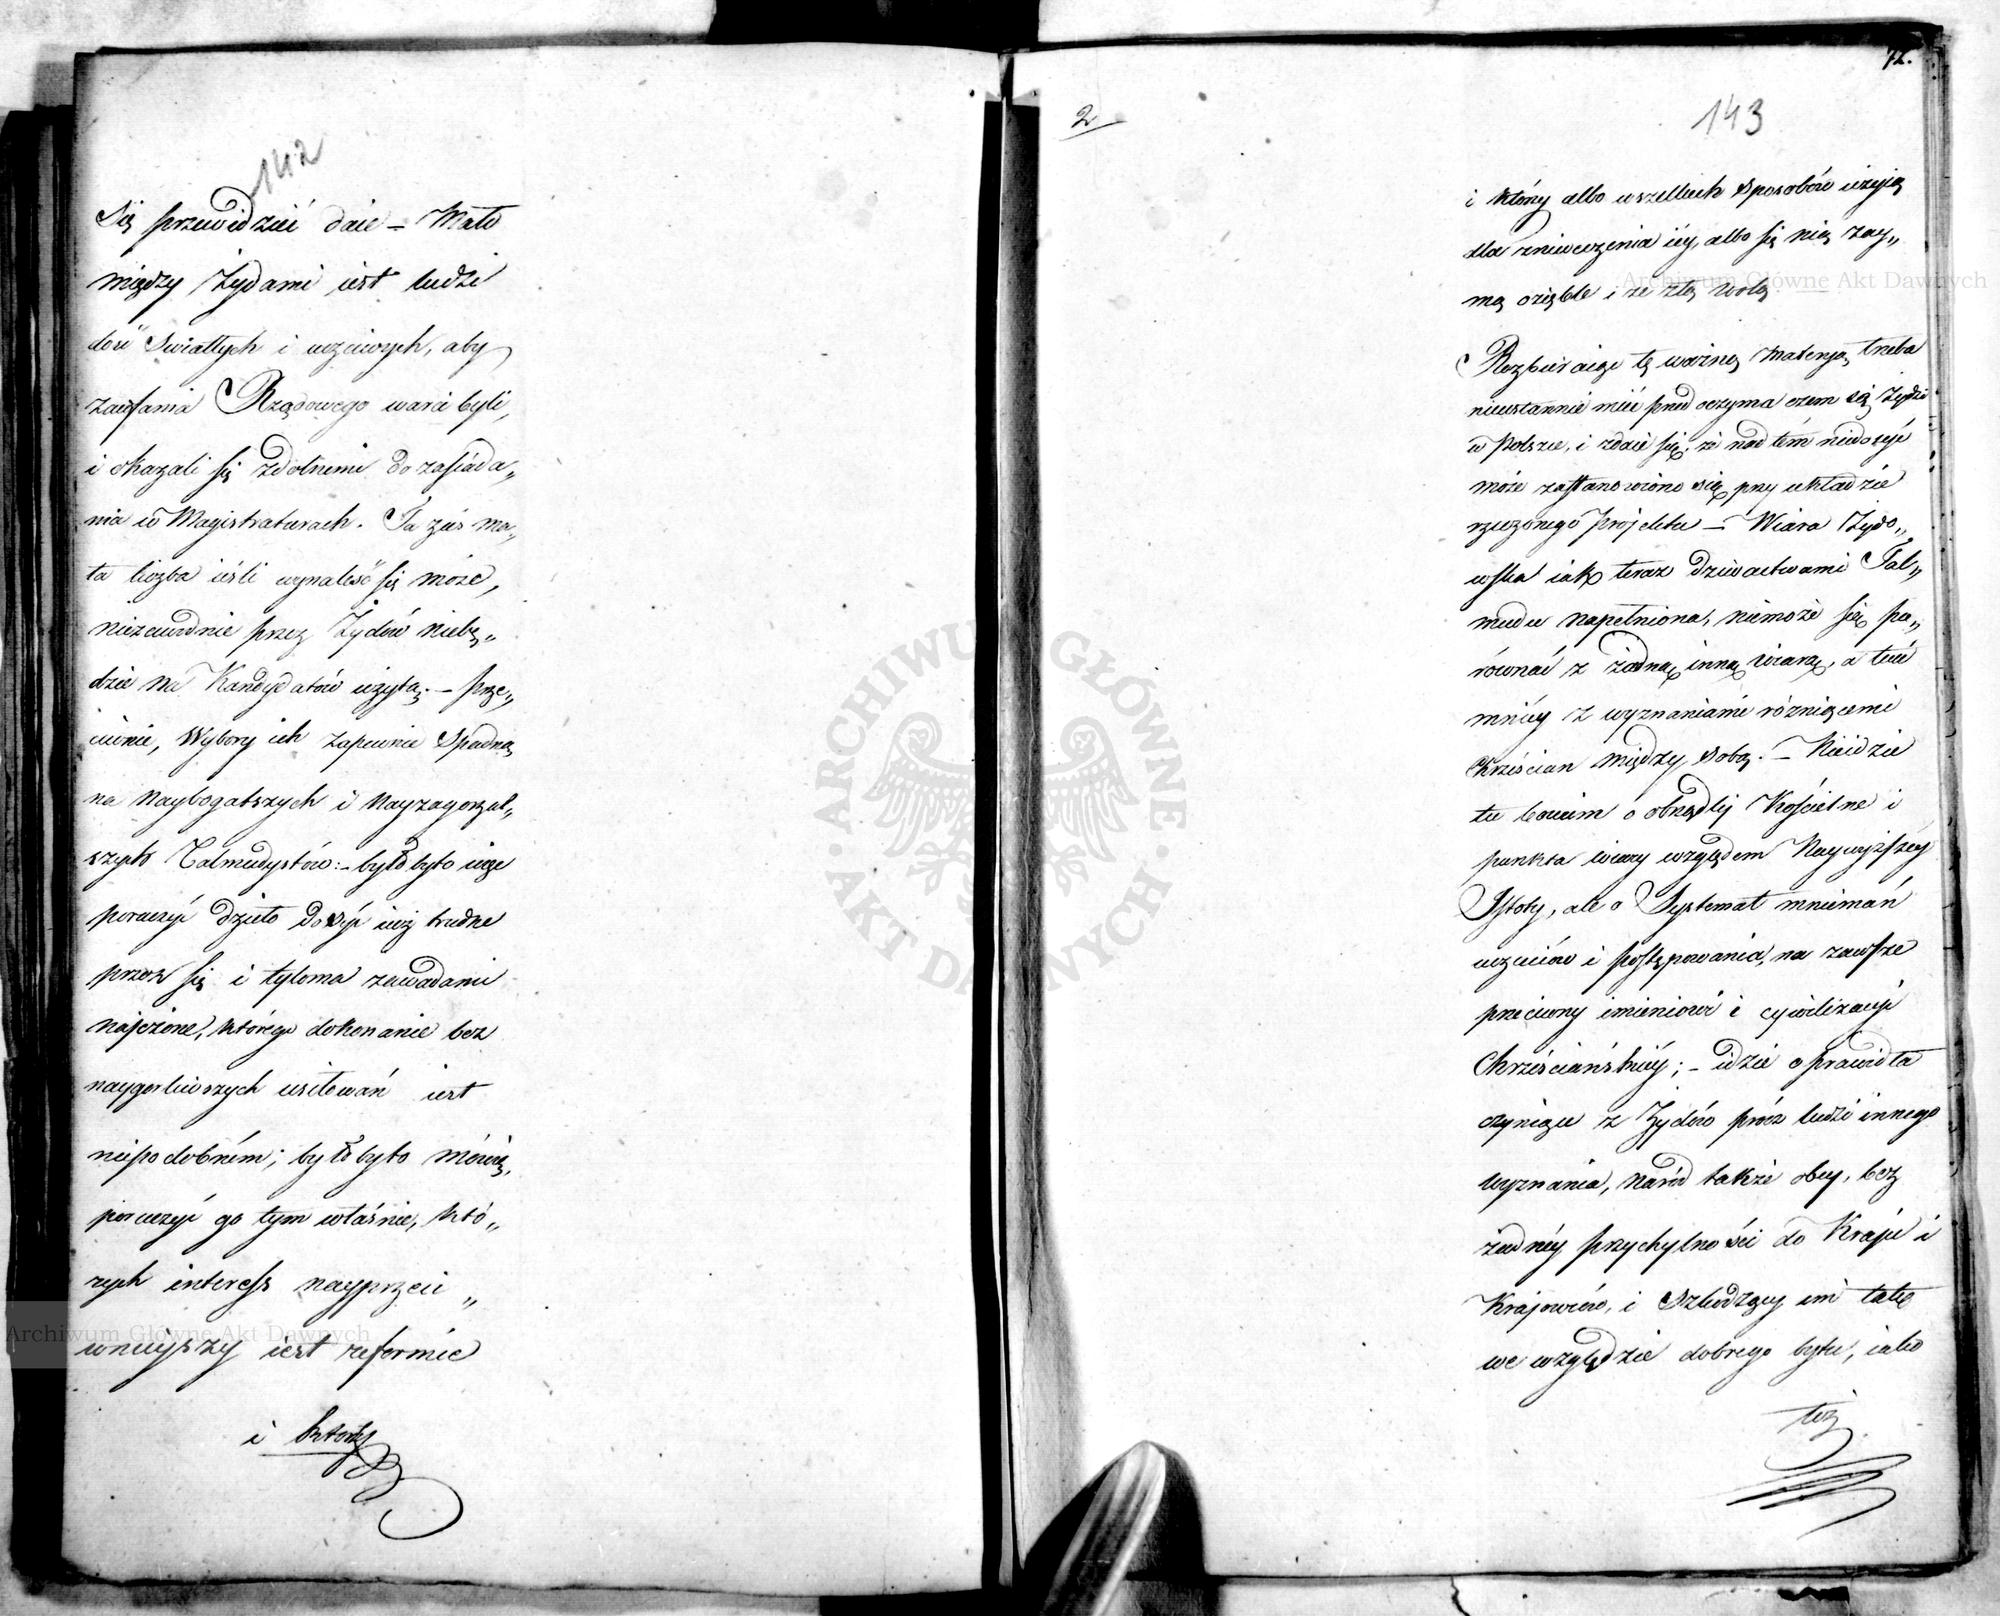 142
Się przewidzieć daie – Mało
między Żydami iest ludzi
dość światłych i uczciwych, aby
zaufania Rządowego warci byli,
i okazali się zdolnemi do zasiada„
nia w Magistraturach. Ta zaś ma„
ła liczba ieśli wynaleść się może,
niezawodnie przez Żydów niebę„
dzie na Kandydatów użytą. – Prze„
ciwnie, Wybory ich zapewnie spadną
na Naybogatszych i Nayzagorzal„
szych Talmudystów: – byłoby to więc
poruczyć dzieło dosyć iuż trudne
przez się i tyloma zawadami
najeżone, którego dokonanie bez
naygorliwszych usiłowań iest
niepodobném; byłoby to mówię,
poruczyć go tym właśnie, któ„
rych interess nayprzeci„
wnieyszy iest reformie
i którzy
72.
2
143
i który albo wszelkich sposobów użyią
dla zniweczenia iéy, albo się nią zay„
mą ozięble i ze złą wolą
Rozbieraiąc tę ważną materyą trzeba
nieustannie mieć przed oczyma czem są Żydzi
w Polszcze, i zdaie się, że nad tém niedosyć
może zastanowiono się przy układzie
rzeczonego Projektu – Wiara Żydo„
wska iak teraz dziwactwami Tal„
mudu napełniona, niemoże się po„
równać z żadną inną wiarą, a tém
mniéy z wyznaniami różniącemi
Chrześcian między sobą. – Nieidzie
tu bowiem o obrządki Kościelne i
punkta wiary względem Naywyższéy
Istoty, ale o Systemat mniemań
uczuciów i postępowania, na zawsze
przeciwny imieniowi i cywilizacyi
Chrześciańskiéy; – idzie o prawidła
czyniące z Żydów prócz ludzi innego
wyznania, naród także obcy, bez
żadnéy przychylności do Kraju i
Krajowców, i szkodzący im tak
we względzie dobrego bytu, iako
też
Archiwum Główne Akt Dawnych
Archiwum Główne Akt Dawnych
ARCHIWUM GŁÓWNE · AKT DAWNYCH ·